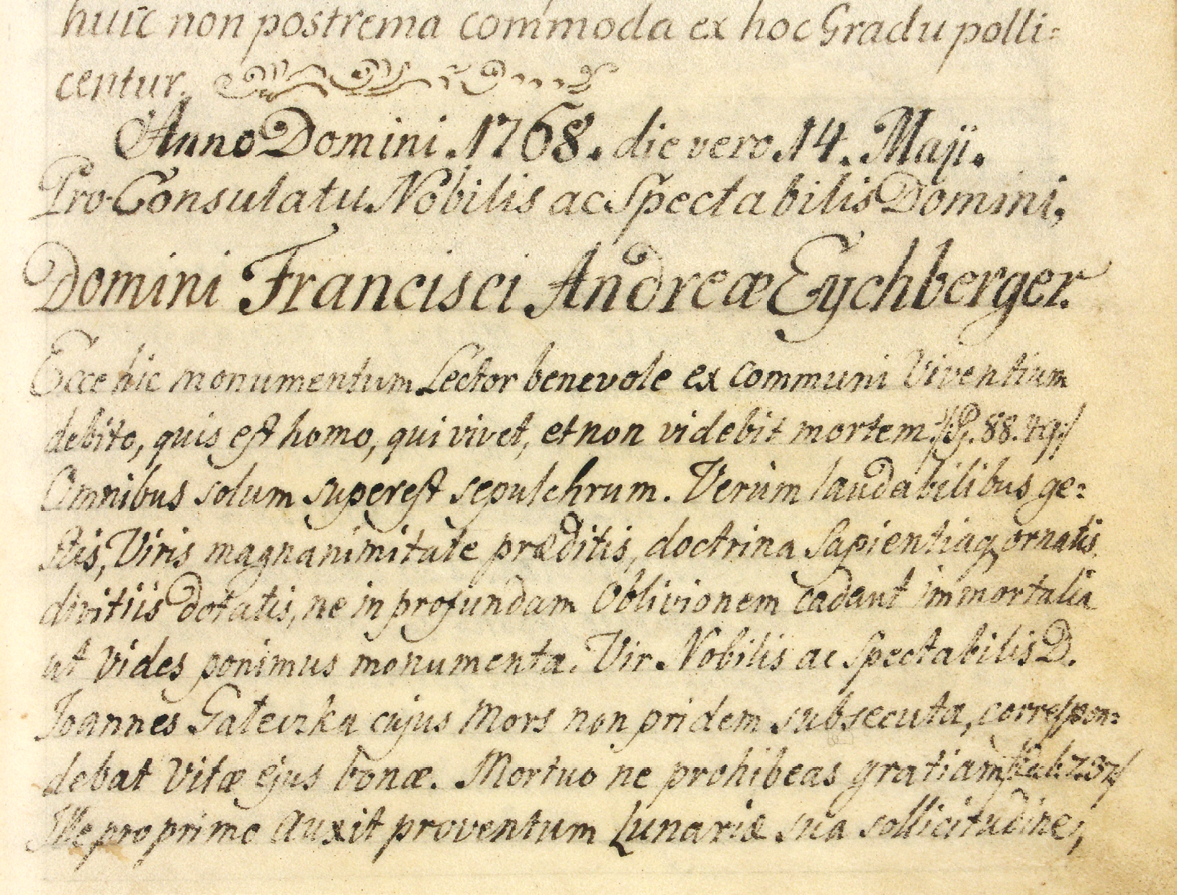 huic non postrema commoda ex hoc Gradu polli=
centur.
Anno Domini .1768. die vero .14. Maji.
Pro-Consulatu Nobilis ac Spectabilis Domini,
Domini Francisci Andreæ Eychberger.
Ecce hic monumentum Lector benevole ex communi Viventium
debito, quis est homo, qui vivet, et non videbit mortem /Ps. 88. 49/
Omnibus solum superest sepulchrum. Verùm laudabilibus ge=
stis, Viris magnanimitate præditis, doctrina Sapientiaq ornatis
divitiis dotatis, ne in profundam Oblivionem cadant immortalia
ut vides ponimus monumenta. Vir Nobilis ac Spectabilis D.
Joannes cujus Mors non pridem subsecuta, correspon=
debat Vitæ ejus bonæ. Mortuo ne prohibeas gratiam
Ille pro primo Auxit proventum Lunariæ sua sollicitudine,